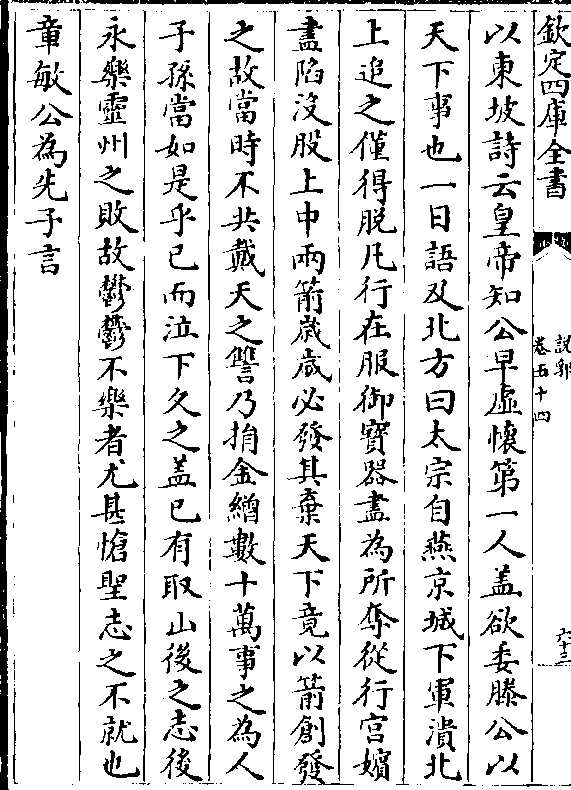 欽定四庫全書
說郛
卷五十四
六十三
以東坡詩云皇帝知公早虛懷第一人盖欲委滕公以
天下事也一日語及北方曰太宗自燕京城下軍潰北
上追之僅得脱凡行在服御寳器盡為所奪從行宫嬪
盡陷沒股上中兩箭歲歲必發其棄天下竟以箭創發
之故當時不共戴天之讐乃捐金繒數十萬事之為人
子孫當如是乎已而泣下久之盖已有取山後之志後
永樂靈州之敗故鬱鬱不樂者尤甚愴聖志之不就也
章敏公為先子言